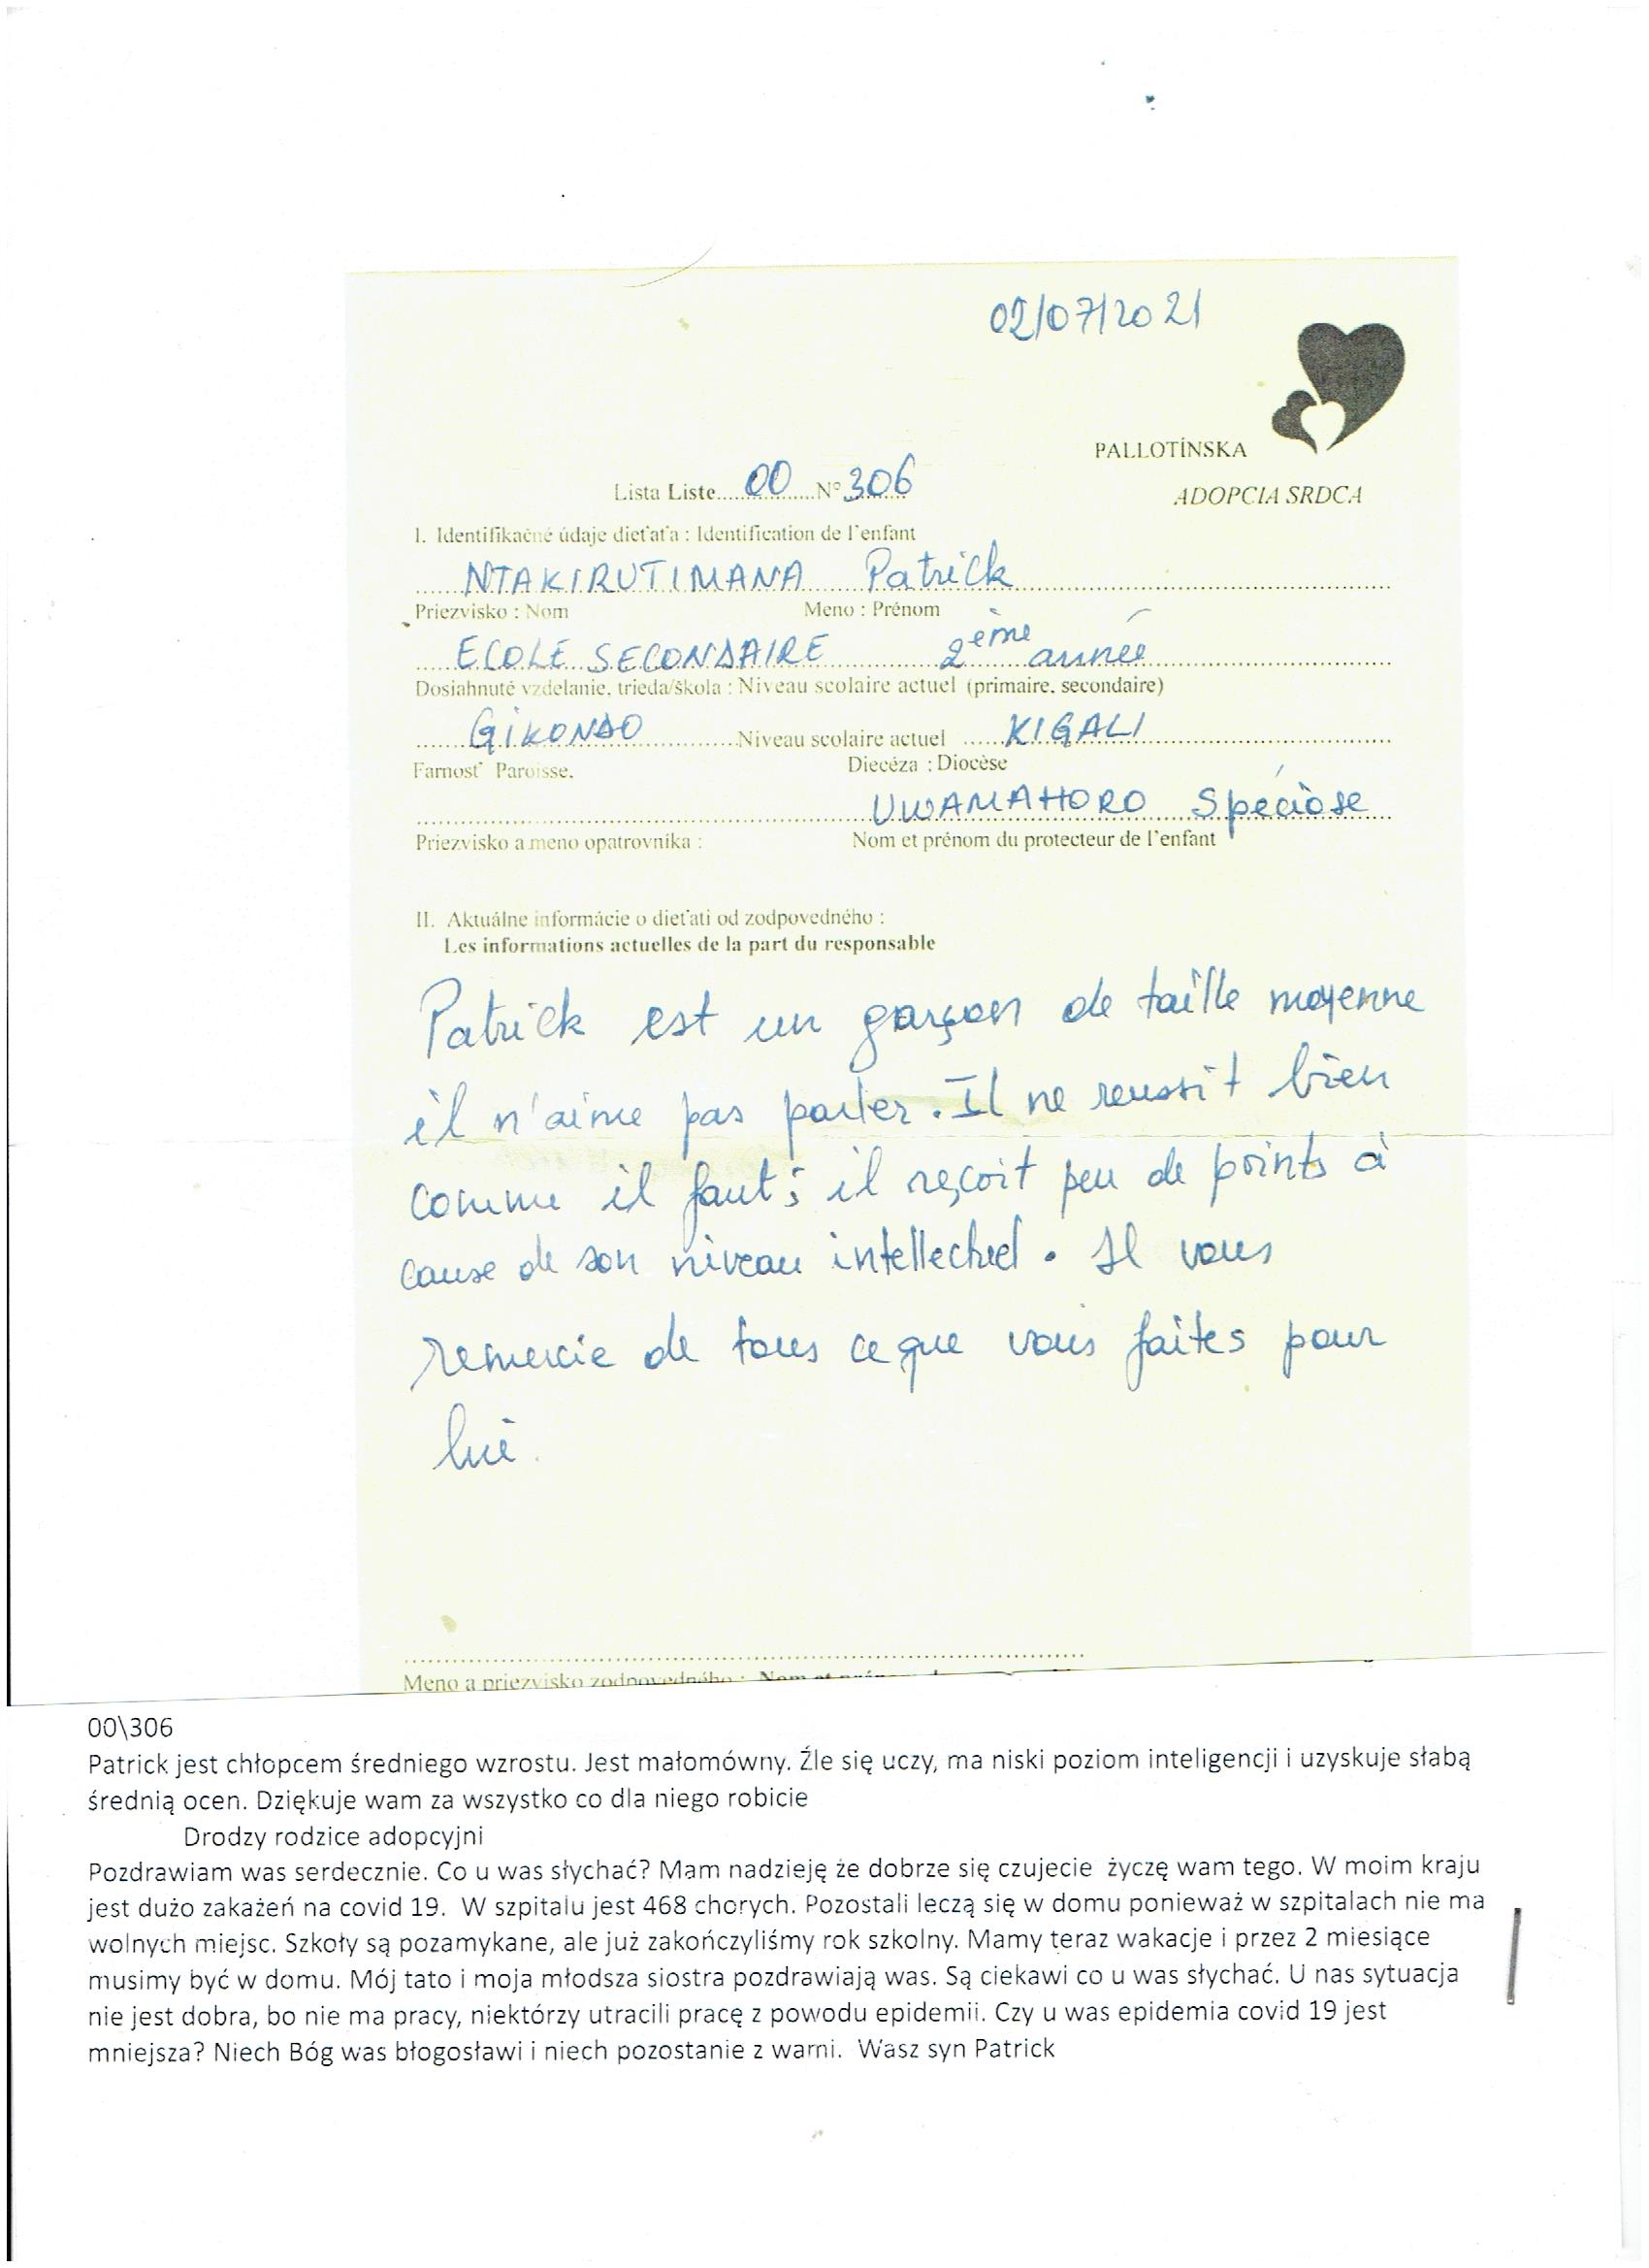 02/07/2021
PALLOTÍNSKA
Lista Liste....00....N°306
ADOPCIA SRDCA
I. Identifikačné údaje dieťaťa : Identification de l'enfant
NTAKIRUTIMANA Patrick
Priezvisko : Nom Meno : Prénom
ECOLE SECONDAIRE 2ème année
Dosiahnuté vzdelanie, trieda/škola : Niveau scolaire actuel (primaire, secondaire)
GiKONDO Niveau scolaire actuel KIGALI
Farnosť Paroisse. Diecéza : Diocèse
UWAMAHORO Spéciose
Priezvisko a meno opatrovníka : Nom et prénom du protecteur de l'enfant
II. Aktuálne informácie o dieťati od zodpovedného :
Les informations actuelles de la part du responsable
Patrick est un garçon de taille moyenne
il n'aime pas parler. Il ne reussit bien
comme il faut ; il reçoit peu de points à
cause de son niveau intellectuel. Il vous
remercie de tous ce que vous faites pour
lui.
Meno a priezvisko zodpovedného : Nom et
00\306
Patrick jest chłopcem średniego wzrostu. Jest małomówny. Źle się uczy, ma niski poziom inteligencji i uzyskuje słabą
średnią ocen. Dziękuje wam za wszystko co dla niego robicie
Drodzy rodzice adopcyjni
Pozdrawiam was serdecznie. Co u was słychać? Mam nadzieję że dobrze się czujecie życzę wam tego. W moim kraju
jest dużo zakażeń na covid 19. W szpitalu jest 468 chorych. Pozostali leczą się w domu ponieważ w szpitalach nie ma
wolnych miejsc. Szkoły są pozamykane, ale już zakończyliśmy rok szkolny. Mamy teraz wakacje i przez 2 miesiące
musimy być w domu. Mój tato i moja młodsza siostra pozdrawiają was. Są ciekawi co u was słychać. U nas sytuacja
nie jest dobra, bo nie ma pracy, niektórzy utracili pracę z powodu epidemii. Czy u was epidemia covid 19 jest
mniejsza? Niech Bóg was błogosławi i niech pozostanie z wami. Wasz syn Patrick